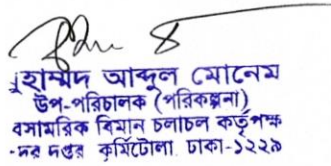 মুহাম্মদ আব্দুল মোনেম
উপ-পরিচালক (পরিকল্পনা)
বসামরিক বিমান চলাচল কর্তৃপক্ষ
-দর দপ্তর কুর্মিটোলা, ঢাকা-১২২৯